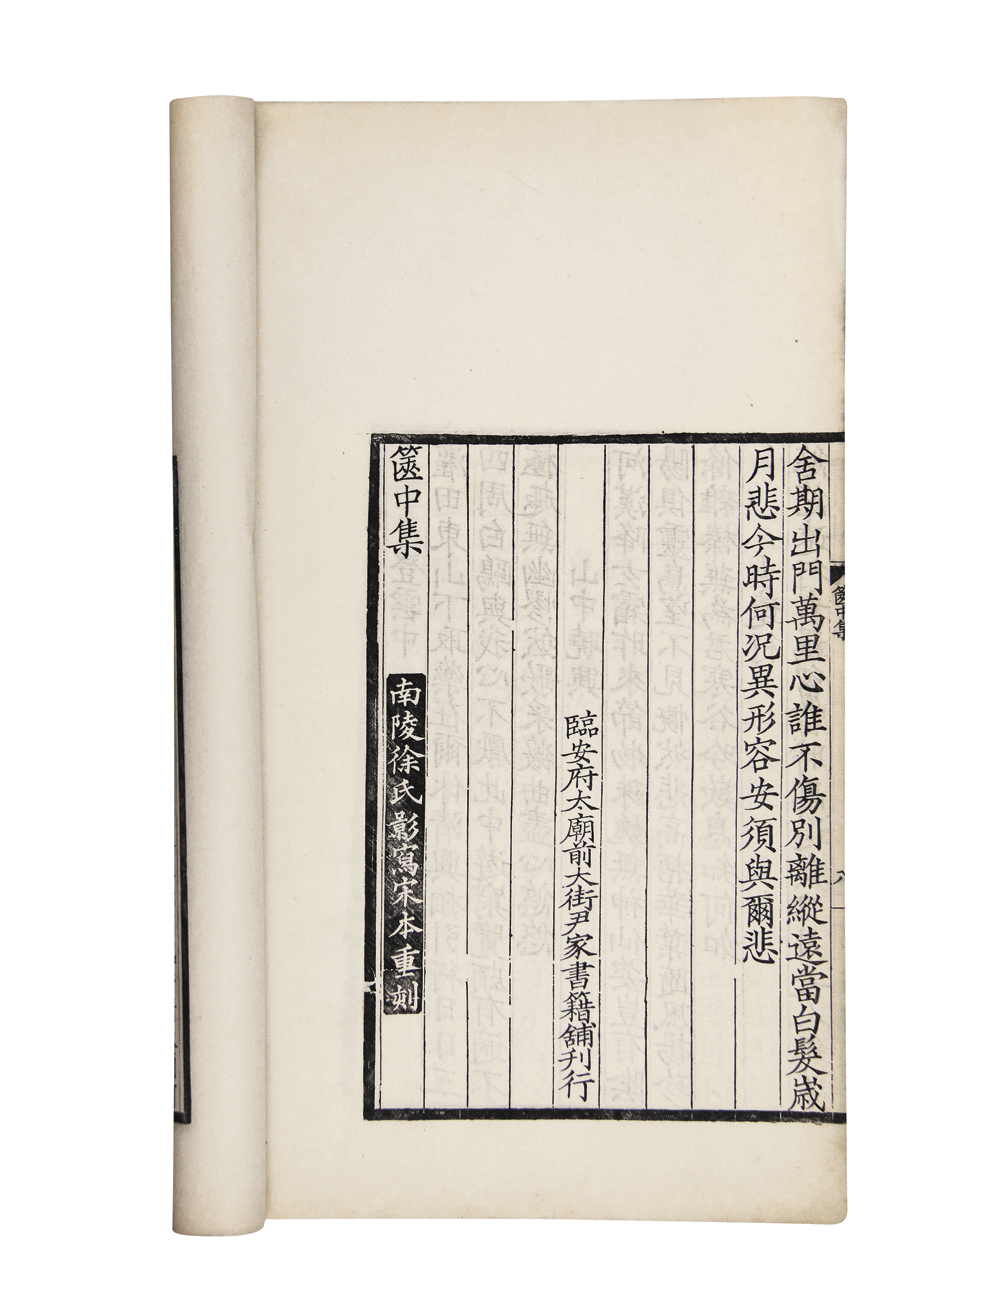 篋中集
八
舍期出門萬里心誰不傷別離縱遠當白髮歲
月悲今時何況異形容安須與爾悲
臨安府太廟前大街尹家書籍舖刊行
篋中集
南陵徐氏影寫宋本重刻